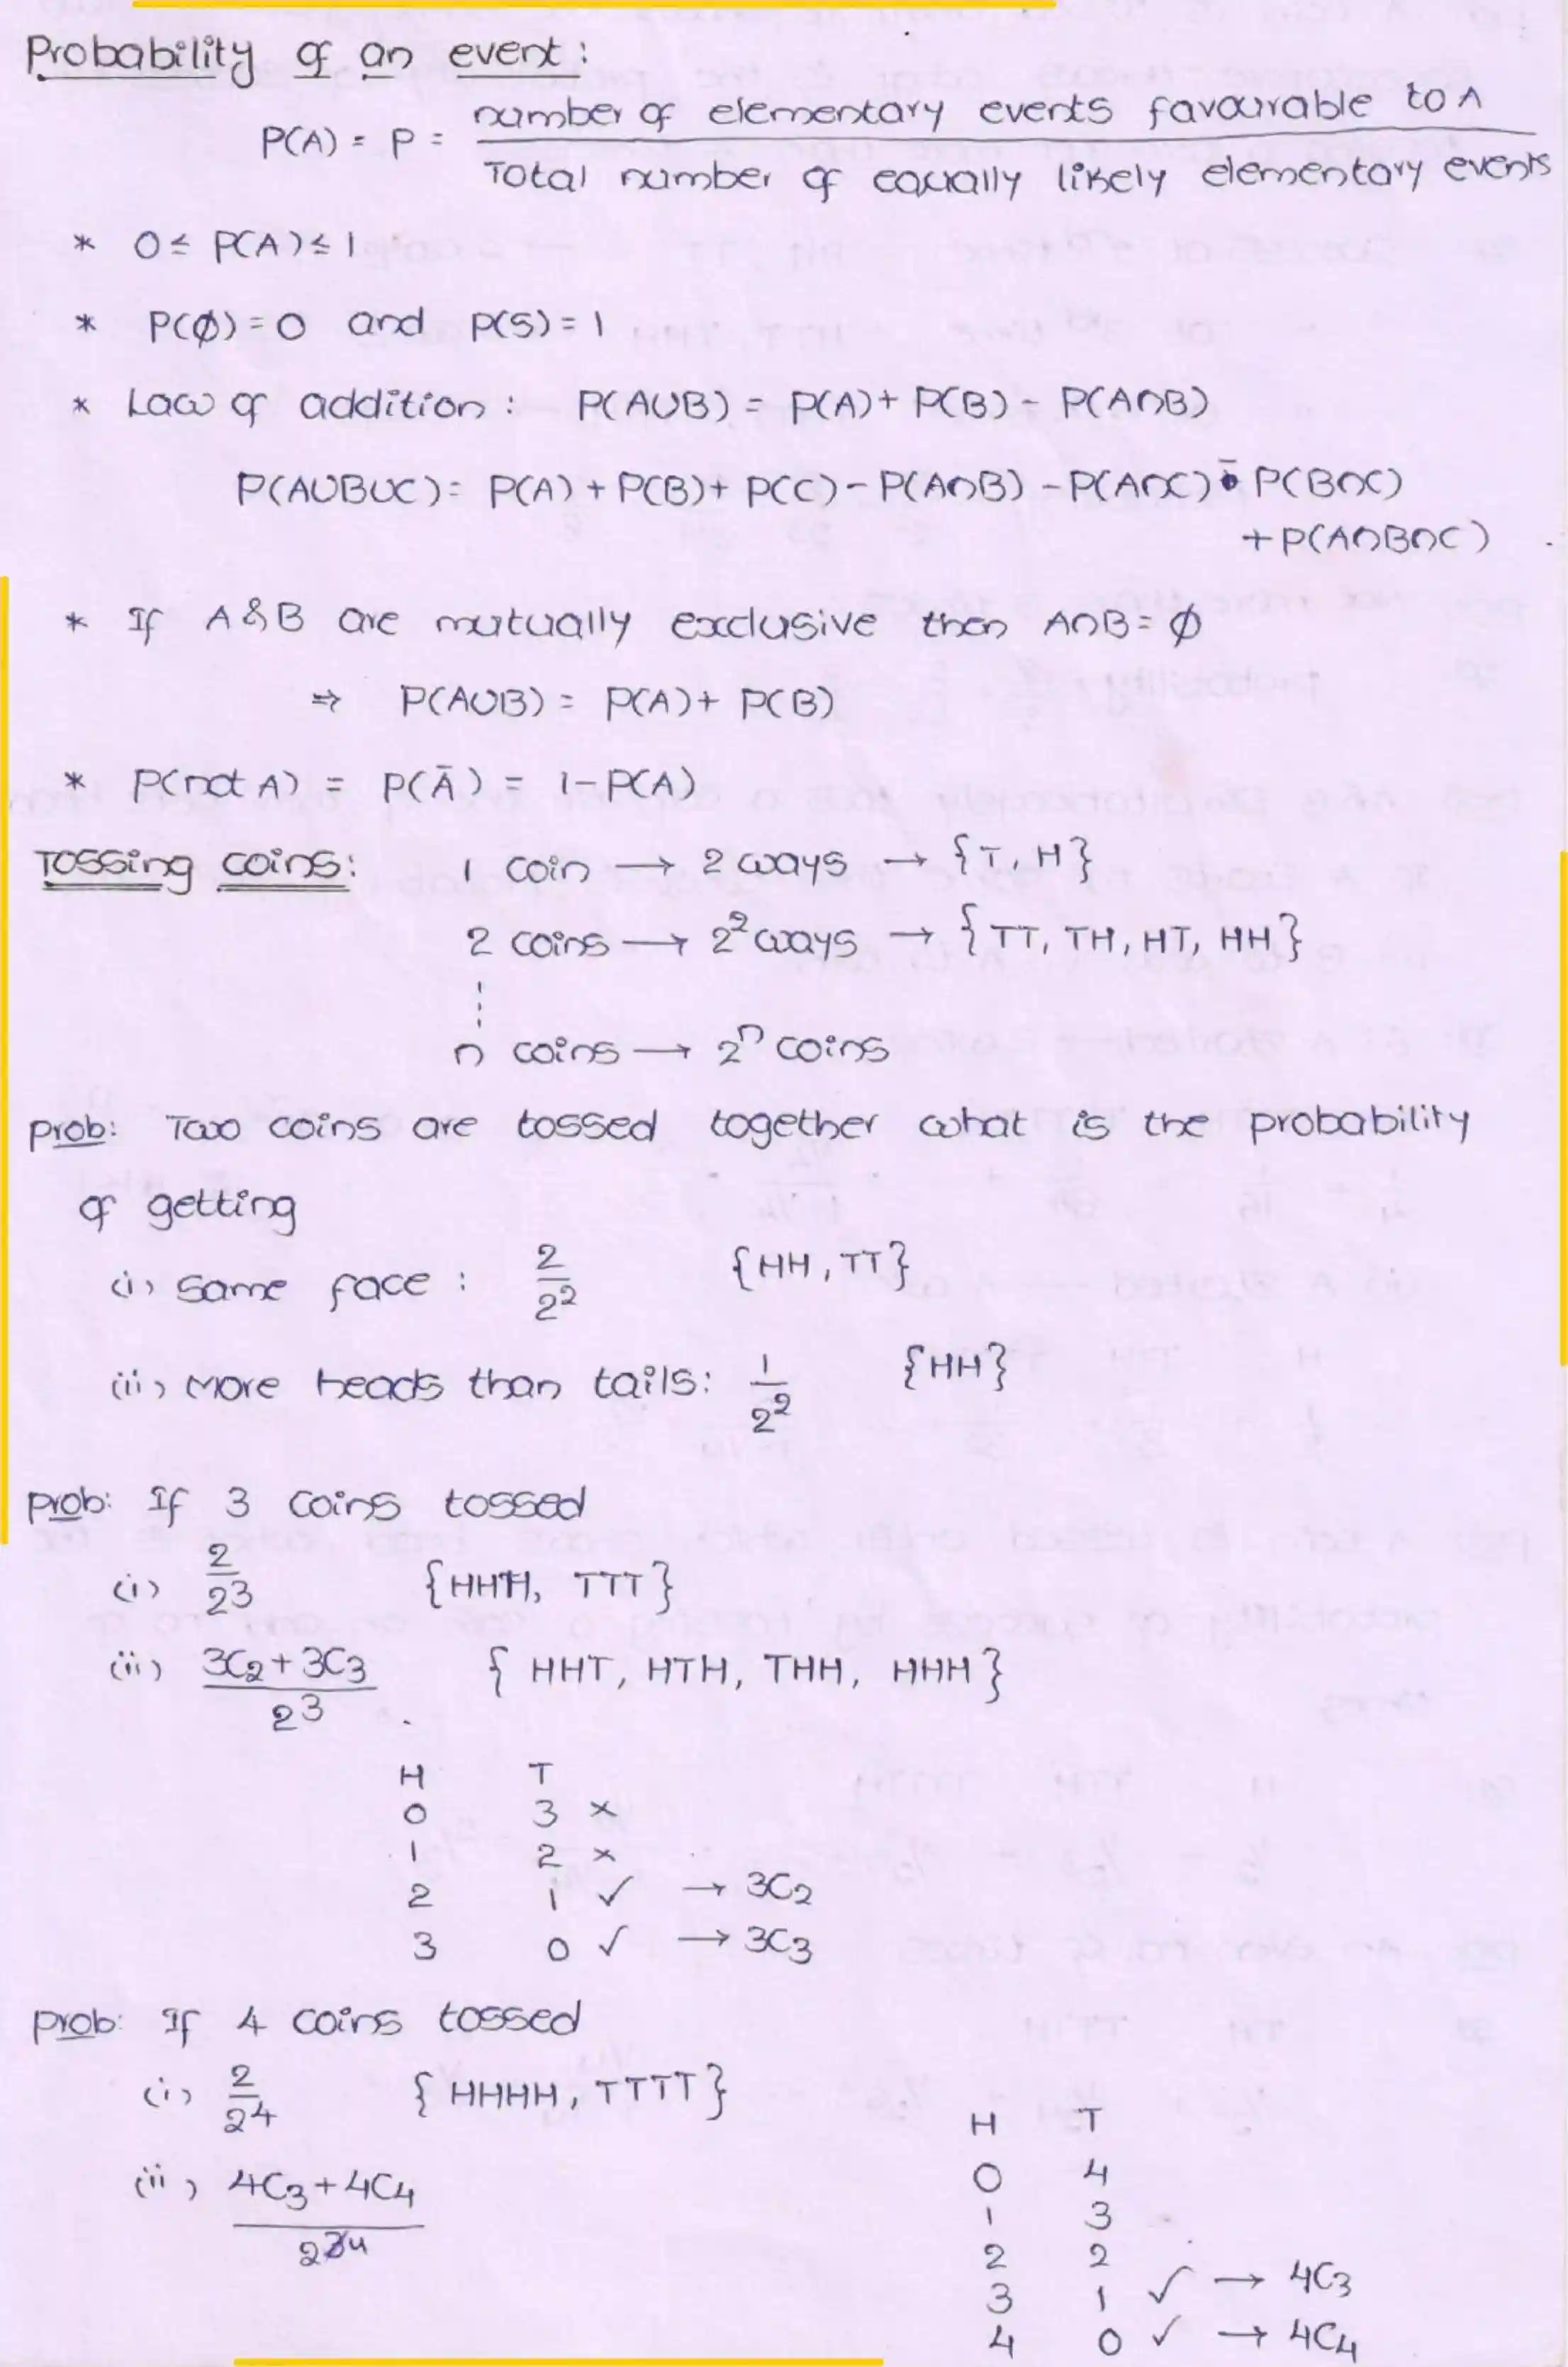 Probability of an event:
P(A) = P = number of elementary events favourable to A / Total number of equally likely elementary events
* 0 ≤ P(A) ≤ 1
* P(∅) = 0 and P(S) = 1
* Law of addition: P(A∪B) = P(A) + P(B) - P(A∩B)
P(A∪B∪C) = P(A) + P(B) + P(C) - P(A∩B) - P(A∩C) - P(B∩C)
+ P(A∩B∩C)
* If A & B are mutually exclusive then A∩B = ∅
⇒ P(A∪B) = P(A) + P(B)
* P(not A) = P(Ā) = 1 - P(A)
Tossing coins: 1 coin → 2 ways → {T, H}
2 coins → 2² ways → {TT, TH, HT, HH}
⋮
n coins → 2ⁿ coins
prob: Two coins are tossed together what is the probability
of getting
(i) Same face: 2/2² {HH, TT}
(ii) More heads than tails: 1/2² {HH}
prob: If 3 coins tossed
(i) 2/2³ {HHH, TTT}
(ii) (3C₂ + 3C₃)/2³ {HHT, HTH, THH, HHH}
H T
0 3 ×
1 2 ×
2 1 ✓ → 3C₂
3 0 ✓ → 3C₃
prob: If 4 coins tossed
(i) 2/2⁴ {HHHH, TTTT}
(ii) (4C₃ + 4C₄)/2⁴
H T
0 4
1 3
2 2
3 1 ✓ → 4C₃
4 0 ✓ → 4C₄